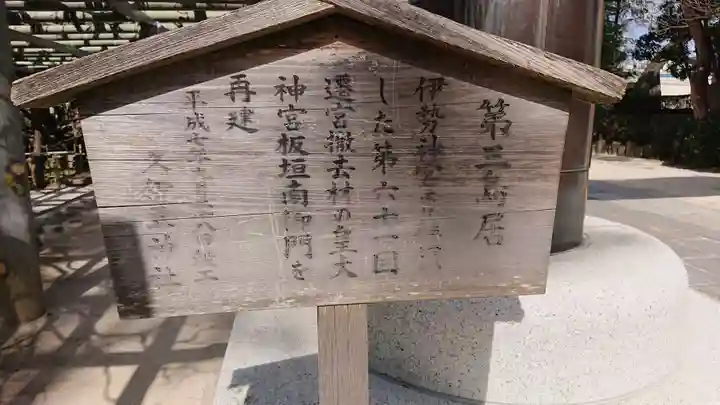 第三鳥居
伊勢神宮
した第六十一回
遷宮撤去材の皇大
神宮板垣南御門を
再建
平成七年 竣工
神社